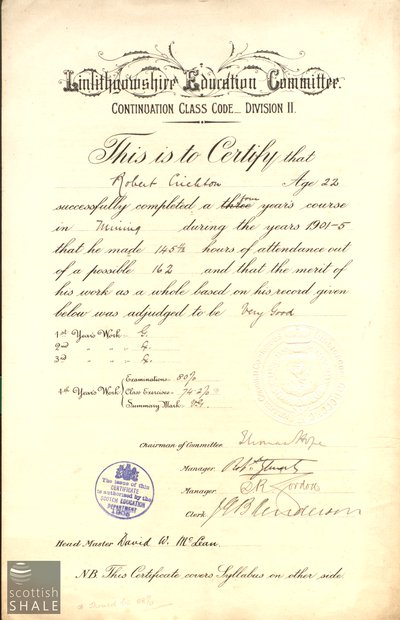 Linlithgowshire Education Committee.
CONTINUATION CLASS CODE. DIVISION II.
This is to Certify that
Robert Crichton Age 22
successfully completed a three four years course
in Mining during the years 1901-5
that he made 145½ hours of attendance out
of a possible 162 and that the merit of
his work as a whole based on his record given
below was adjudged to be Very Good
1st Year's Work G.
2nd " " G.
3rd " " G.
4th Year's Work
Examinations 80%
Class Exercises 74.2%
Summary Mark V.G.
Chairman of Committee Thomas Hope
Manager
Manager
Clerk J G B Henderson
The issue of this
CERTIFICATE
is authorised by the
SCOTCH EDUCATION
DEPARTMENT
Head Master David W. McLean.
N.B. This Certificate covers Syllabus on other side.
scottish
SHALE